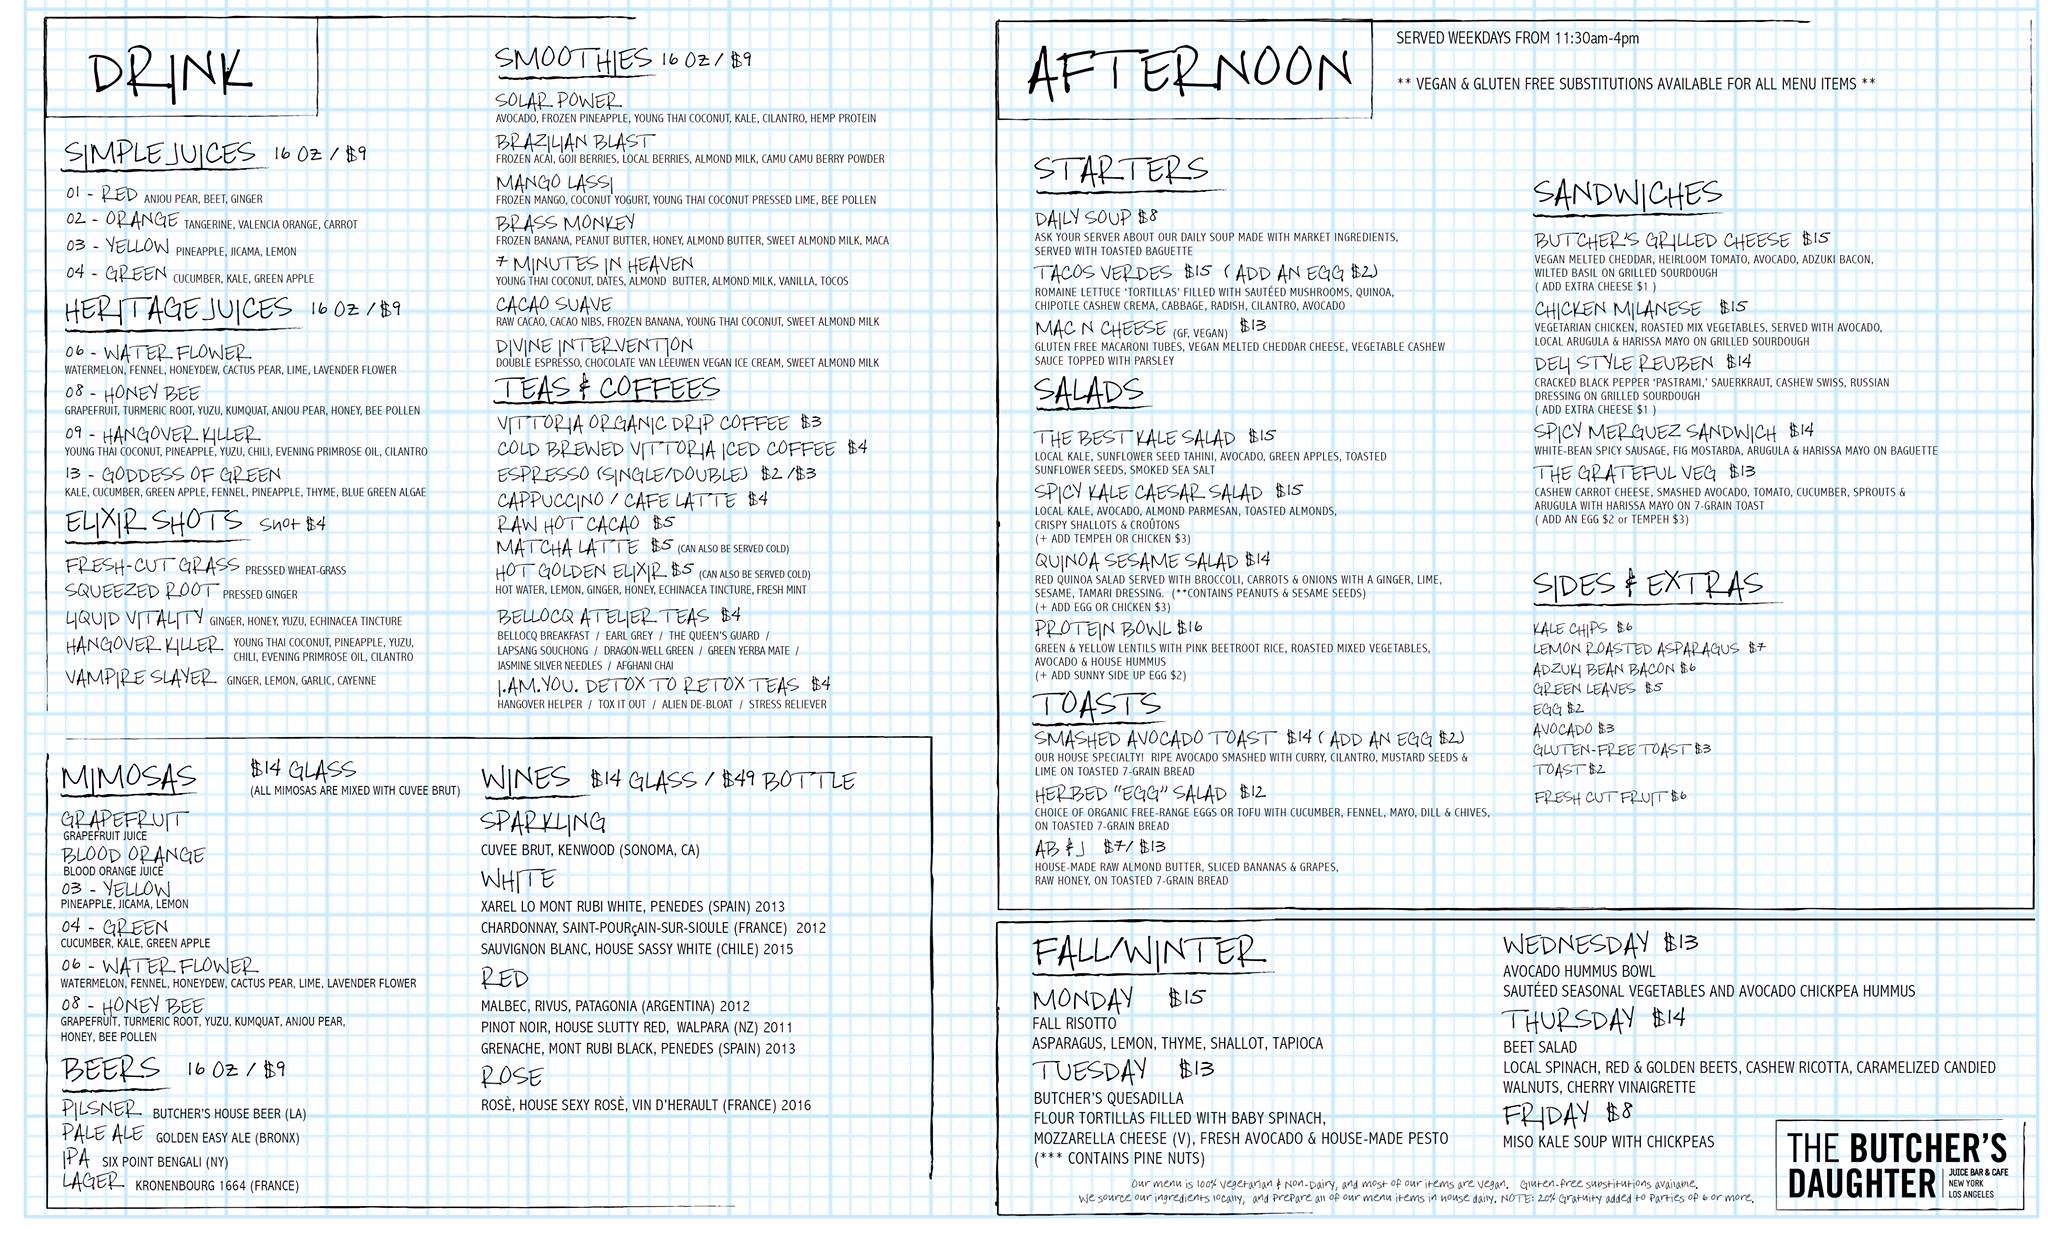 DRINK
SIMPLE JUICES 16 OZ / $9
01 - RED ANJOU PEAR, BEET, GINGER
02 - ORANGE TANGERINE, VALENCIA ORANGE, CARROT
03 - YELLOW PINEAPPLE, JICAMA, LEMON
04 - GREEN CUCUMBER, KALE, GREEN APPLE
HERITAGE JUICES 16 OZ / $9
06 - WATER FLOWER
WATERMELON, FENNEL, HONEYDEW, CACTUS PEAR, LIME, LAVENDER FLOWER
08 - HONEY BEE
GRAPEFRUIT, TURMERIC ROOT, YUZU, KUMQUAT, ANJOU PEAR, HONEY, BEE POLLEN
09 - HANGOVER KILLER
YOUNG THAI COCONUT, PINEAPPLE, YUZU, CHILI, EVENING PRIMROSE OIL, CILANTRO
13 - GODDESS OF GREEN
KALE, CUCUMBER, GREEN APPLE, FENNEL, PINEAPPLE, THYME, BLUE GREEN ALGAE
ELIXIR SHOTS Shot $4
FRESH-CUT GRASS PRESSED WHEAT-GRASS
SQUEEZED ROOT PRESSED GINGER
LIQUID VITALITY GINGER, HONEY, YUZU, ECHINACEA TINCTURE
HANGOVER KILLER YOUNG THAI COCONUT, PINEAPPLE, YUZU,
CHILI, EVENING PRIMROSE OIL, CILANTRO
VAMPIRE SLAYER GINGER, LEMON, GARLIC, CAYENNE
SMOOTHIES 16 OZ / $9
SOLAR POWER
AVOCADO, FROZEN PINEAPPLE, YOUNG THAI COCONUT, KALE, CILANTRO, HEMP PROTEIN
BRAZILIAN BLAST
FROZEN ACAI, GOJI BERRIES, LOCAL BERRIES, ALMOND MILK, CAMU CAMU BERRY POWDER
MANGO LASSI
FROZEN MANGO, COCONUT YOGURT, YOUNG THAI COCONUT PRESSED LIME, BEE POLLEN
BRASS MONKEY
FROZEN BANANA, PEANUT BUTTER, HONEY, ALMOND BUTTER, SWEET ALMOND MILK, MACA
7 MINUTES IN HEAVEN
YOUNG THAI COCONUT, DATES, ALMOND BUTTER, ALMOND MILK, VANILLA, TOCOS
CACAO SUAVE
RAW CACAO, CACAO NIBS, FROZEN BANANA, YOUNG THAI COCONUT, SWEET ALMOND MILK
DIVINE INTERVENTION
DOUBLE ESPRESSO, CHOCOLATE VAN LEEUWEN VEGAN ICE CREAM, SWEET ALMOND MILK
TEAS & COFFEES
VITTORIA ORGANIC DRIP COFFEE $3
COLD BREWED VITTORIA ICED COFFEE $4
ESPRESSO (SINGLE/DOUBLE) $2 /$3
CAPPUCCINO / CAFE LATTE $4
RAW HOT CACAO $5
MATCHA LATTE $5 (CAN ALSO BE SERVED COLD)
HOT GOLDEN ELIXIR $5 (CAN ALSO BE SERVED COLD)
HOT WATER, LEMON, GINGER, HONEY, ECHINACEA TINCTURE, FRESH MINT
BELLOCQ ATELIER TEAS $4
BELLOCQ BREAKFAST / EARL GREY / THE QUEEN'S GUARD /
LAPSANG SOUCHONG / DRAGON-WELL GREEN / GREEN YERBA MATE /
JASMINE SILVER NEEDLES / AFGHANI CHAI
I.AM.YOU. DETOX TO RETOX TEAS $4
HANGOVER HELPER / TOX IT OUT / ALIEN DE-BLOAT / STRESS RELIEVER
MIMOSAS $14 GLASS
(ALL MIMOSAS ARE MIXED WITH CUVEE BRUT)
GRAPEFRUIT
GRAPEFRUIT JUICE
BLOOD ORANGE
BLOOD ORANGE JUICE
03 - YELLOW
PINEAPPLE, JICAMA, LEMON
04 - GREEN
CUCUMBER, KALE, GREEN APPLE
06 - WATER FLOWER
WATERMELON, FENNEL, HONEYDEW, CACTUS PEAR, LIME, LAVENDER FLOWER
08 - HONEY BEE
GRAPEFRUIT, TURMERIC ROOT, YUZU, KUMQUAT, ANJOU PEAR,
HONEY, BEE POLLEN
BEERS 16 OZ / $9
PILSNER BUTCHER'S HOUSE BEER (LA)
PALE ALE GOLDEN EASY ALE (BRONX)
IPA SIX POINT BENGALI (NY)
LAGER KRONENBOURG 1664 (FRANCE)
WINES $14 GLASS / $49 BOTTLE
SPARKLING
CUVEE BRUT, KENWOOD (SONOMA, CA)
WHITE
XAREL LO MONT RUBI WHITE, PENEDES (SPAIN) 2013
CHARDONNAY, SAINT-POURçAIN-SUR-SIOULE (FRANCE) 2012
SAUVIGNON BLANC, HOUSE SASSY WHITE (CHILE) 2015
RED
MALBEC, RIVUS, PATAGONIA (ARGENTINA) 2012
PINOT NOIR, HOUSE SLUTTY RED, WALPARA (NZ) 2011
GRENACHE, MONT RUBI BLACK, PENEDES (SPAIN) 2013
ROSE
ROSÈ, HOUSE SEXY ROSÈ, VIN D'HERAULT (FRANCE) 2016
AFTERNOON
SERVED WEEKDAYS FROM 11:30am-4pm
** VEGAN & GLUTEN FREE SUBSTITUTIONS AVAILABLE FOR ALL MENU ITEMS **
STARTERS
DAILY SOUP $8
ASK YOUR SERVER ABOUT OUR DAILY SOUP MADE WITH MARKET INGREDIENTS,
SERVED WITH TOASTED BAGUETTE
TACOS VERDES $15 ( ADD AN EGG $2)
ROMAINE LETTUCE 'TORTILLAS' FILLED WITH SAUTÉED MUSHROOMS, QUINOA,
CHIPOTLE CASHEW CREMA, CABBAGE, RADISH, CILANTRO, AVOCADO
MAC N CHEESE (GF, VEGAN) $13
GLUTEN FREE MACARONI TUBES, VEGAN MELTED CHEDDAR CHEESE, VEGETABLE CASHEW
SAUCE TOPPED WITH PARSLEY
SALADS
THE BEST KALE SALAD $15
LOCAL KALE, SUNFLOWER SEED TAHINI, AVOCADO, GREEN APPLES, TOASTED
SUNFLOWER SEEDS, SMOKED SEA SALT
SPICY KALE CAESAR SALAD $15
LOCAL KALE, AVOCADO, ALMOND PARMESAN, TOASTED ALMONDS,
CRISPY SHALLOTS & CROÛTONS
(+ ADD TEMPEH OR CHICKEN $3)
QUINOA SESAME SALAD $14
RED QUINOA SALAD SERVED WITH BROCCOLI, CARROTS & ONIONS WITH A GINGER, LIME,
SESAME, TAMARI DRESSING. (**CONTAINS PEANUTS & SESAME SEEDS)
(+ ADD EGG OR CHICKEN $3)
PROTEIN BOWL $16
GREEN & YELLOW LENTILS WITH PINK BEETROOT RICE, ROASTED MIXED VEGETABLES,
AVOCADO & HOUSE HUMMUS
(+ ADD SUNNY SIDE UP EGG $2)
TOASTS
SMASHED AVOCADO TOAST $14 ( ADD AN EGG $2)
OUR HOUSE SPECIALTY! RIPE AVOCADO SMASHED WITH CURRY, CILANTRO, MUSTARD SEEDS &
LIME ON TOASTED 7-GRAIN BREAD
HERBED "EGG" SALAD $12
CHOICE OF ORGANIC FREE-RANGE EGGS OR TOFU WITH CUCUMBER, FENNEL, MAYO, DILL & CHIVES,
ON TOASTED 7-GRAIN BREAD
AB & J $7/ $13
HOUSE-MADE RAW ALMOND BUTTER, SLICED BANANAS & GRAPES,
RAW HONEY, ON TOASTED 7-GRAIN BREAD
SANDWICHES
BUTCHER'S GRILLED CHEESE $15
VEGAN MELTED CHEDDAR, HEIRLOOM TOMATO, AVOCADO, ADZUKI BACON,
WILTED BASIL ON GRILLED SOURDOUGH
( ADD EXTRA CHEESE $1 )
CHICKEN MILANESE $15
VEGETARIAN CHICKEN, ROASTED MIX VEGETABLES, SERVED WITH AVOCADO,
LOCAL ARUGULA & HARISSA MAYO ON GRILLED SOURDOUGH
DELI STYLE REUBEN $14
CRACKED BLACK PEPPER 'PASTRAMI,' SAUERKRAUT, CASHEW SWISS, RUSSIAN
DRESSING ON GRILLED SOURDOUGH
( ADD EXTRA CHEESE $1 )
SPICY MERGUEZ SANDWICH $14
WHITE-BEAN SPICY SAUSAGE, FIG MOSTARDA, ARUGULA & HARISSA MAYO ON BAGUETTE
THE GRATEFUL VEG $13
CASHEW CARROT CHEESE, SMASHED AVOCADO, TOMATO, CUCUMBER, SPROUTS &
ARUGULA WITH HARISSA MAYO ON 7-GRAIN TOAST
( ADD AN EGG $2 or TEMPEH $3)
SIDES & EXTRAS
KALE CHIPS $6
LEMON ROASTED ASPARAGUS $7
ADZUKI BEAN BACON $6
GREEN LEAVES $5
EGG $2
AVOCADO $3
GLUTEN-FREE TOAST $3
TOAST $2
FRESH CUT FRUIT $6
FALL/WINTER
MONDAY $15
FALL RISOTTO
ASPARAGUS, LEMON, THYME, SHALLOT, TAPIOCA
TUESDAY $13
BUTCHER'S QUESADILLA
FLOUR TORTILLAS FILLED WITH BABY SPINACH,
MOZZARELLA CHEESE (V), FRESH AVOCADO & HOUSE-MADE PESTO
(*** CONTAINS PINE NUTS)
WEDNESDAY $13
AVOCADO HUMMUS BOWL
SAUTÉED SEASONAL VEGETABLES AND AVOCADO CHICKPEA HUMMUS
THURSDAY $14
BEET SALAD
LOCAL SPINACH, RED & GOLDEN BEETS, CASHEW RICOTTA, CARAMELIZED CANDIED
WALNUTS, CHERRY VINAIGRETTE
FRIDAY $8
MISO KALE SOUP WITH CHICKPEAS
Our menu is 100% vegetarian & Non-Dairy, and most of our items are vegan. Gluten-free substitutions available.
We source our ingredients locally, and prepare all of our menu items in house daily. NOTE: 20% Gratuity added to Parties of 6 or more.
THE BUTCHER'S
DAUGHTER
JUICE BAR & CAFE
NEW YORK
LOS ANGELES